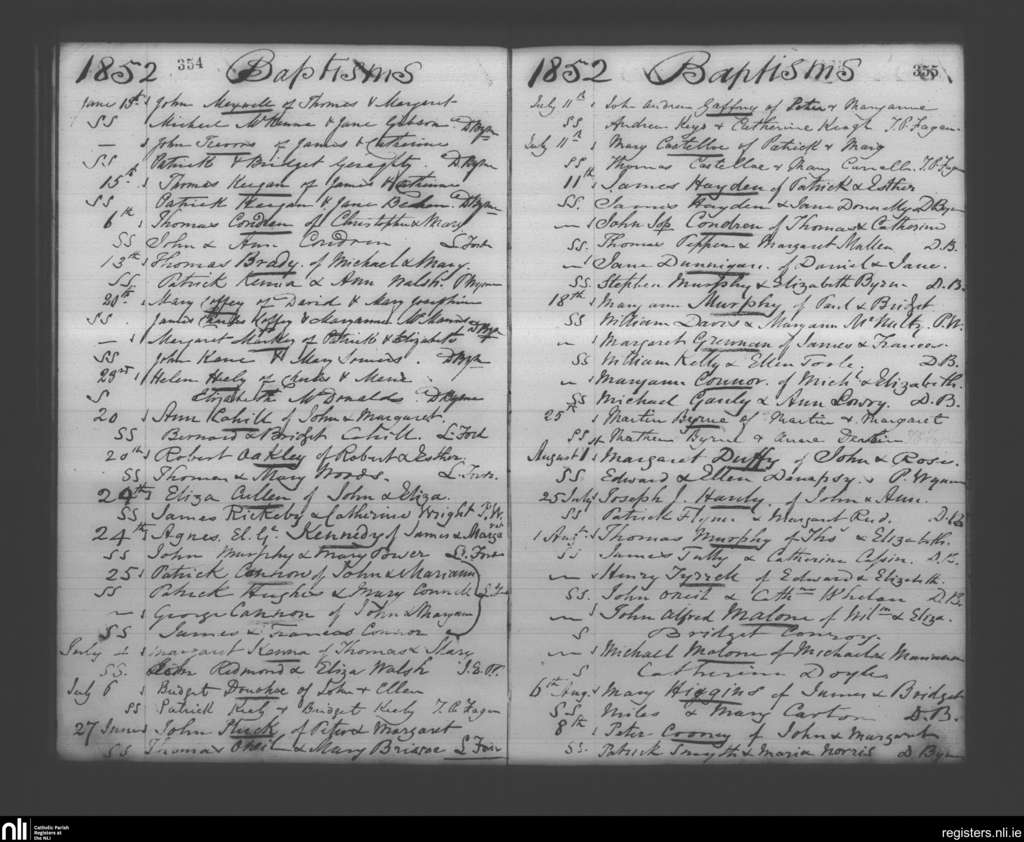 1852 354 Baptisms
June 13th John Maxwell of Thomas & Margaret
SS Michael McKenna & Jane Gibson D Byrne
John of James & Catherine
SS Patrick & Bridget Geraghty D. Byrne
15th Thomas Keegan of James &
SS Patrick Keegan & Jane D Byrne
6th Thomas Condren of Christopher & Mary
SS John & Ann Condren L Forde
13th Thomas Brady of Michael & Mary
SS Patrick Kenna & Ann Walsh. P Wynne
20th Mary Coffey of David & Mary Josephine
SS James Coffey & Maryanne D Byrne
Margaret of Patrick & Elizabeth
SS John Kane & Mary D Byrne
23rd Helen Heely of &
S Elizabeth McDonald D Byrne
20 Ann Cahill of John & Margaret
SS Bernard & Bridget Cahill. L Ford
20th Robert Oakley of Robert & Esther
SS Thomas & Mary Woods. L. Forde
24th Eliza Cullen of John & Eliza.
SS James Rickeby & Catherine Wright P. W.
24th Agnes. Kennedy of James &
SS John Murphy & Mary Power L. Forde
25 Patrick Connor of John & Mariann
SS Patrick Hughes & Mary Connell
George Cannon of John & Maryann
SS James & Frances Connor
July 4 Margaret Kenna of Thomas & Mary
SS. Redmond & Eliza Walsh
July 6 Bridget Donohoe of John & Ellen
SS Patrick Keely & Bridget Keely T. P. Fagan
27 June John Stuck of Peter & Margaret
SS Thomas & Mary Briscoe L Ford
1852 Baptisms 355
July 11th John Andrew Gaffny of Peter & Maryanne
SS Andrew Keys & Catherine Keogh T. P. Fagan.
July 11th Mary Castellae of Patrick & Mary
SS. Thomas Castellae & Mary T. P. Fagan
11th James Hayden of Patrick & Esther
SS. James Hayden & Jane D Byrne
John Jos Condren of Thomas & Catherine
SS. Thomas Pippen & Margaret Mallen D. B.
Jane Dunnigan. of Daniel & Jane.
SS. Stephen Murphy & Elizabeth Byrne D. B.
18th Maryann Murphy of Paul & Bridget
SS William Davis & Maryann McNulty. P. W.
Margaret Grennan of James & Frances
SS William Kelly & Ellen Toole D. B.
Maryann Connor. of Michl & Elizabeth.
SS Michael Gandy & Ann Lowry. D. B.
25th Martin Byrne of Martin & Margaret
SS Mathew Byrne & Anne
August 1 Margaret Duffy of John & Rose.
SS Edward & Ellen Dempsy. P. Wynne
25 July Joseph J. Handy. of John & Ann.
SS Patrick Flynn & Margaret Reid. D. B.
1 Augt Thomas Murphy of Ths & Elizabeth.
SS James Tutty & Catherine D. B.
Henry Tyrrell of Edward & Elizabeth.
SS. John Oneil & Cathne Whelan D. B.
John Alfred Malone of Wilm & Eliza.
S Bridget Conroy.
Michael Malone of Michael &
S Catherine Doyle
6th Aug. Mary Higgins of James & Bridget
SS Miles & Mary Carton D. B.
8th Peter Cooney of John & Margaret
SS. Patrick Smyth & Maria Norris D. Byrne
nli Catholic Parish Registers at the NLI
registers.nli.ie